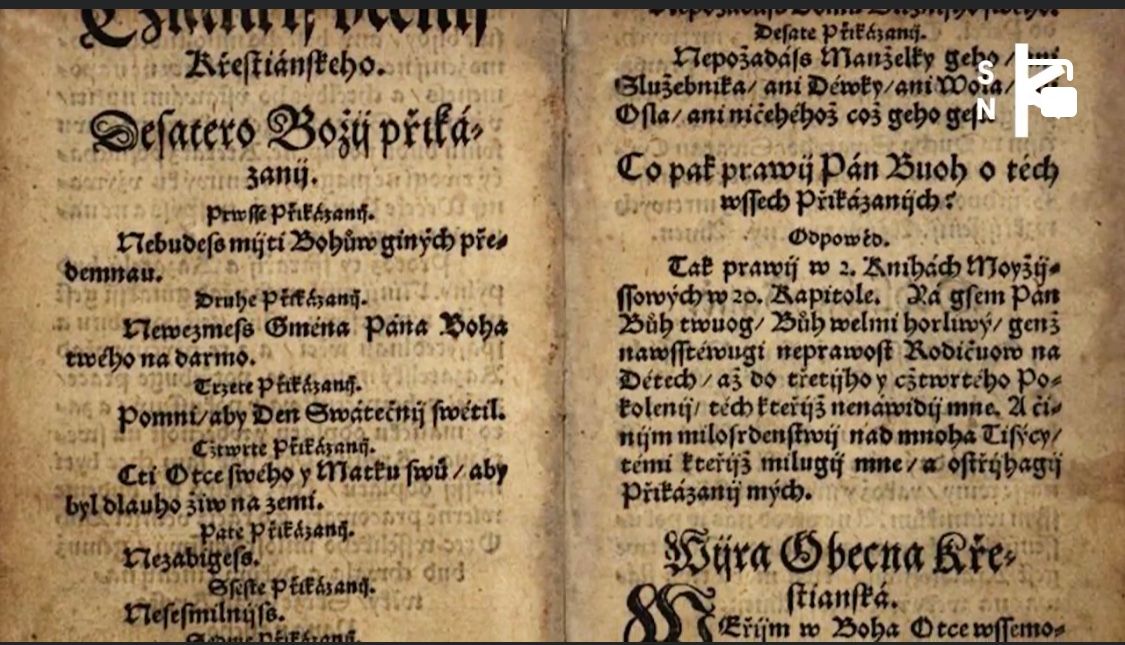 Křestiánskeho.
Desatero Božij přiká-
zanij.
Prwsse Přikázanij.
Nebudess mijti Bohůw giných pře-
demnau.
Druhe Přikázanij.
Newezmess Gména Pána Boha
twého na darmo.
Trzete Přikázanij.
Pomni/aby Den Swátečnij swětil.
Cztwrte Přikázanij.
Cti Otce swého y Matku swů / aby
byl dlauho žiw na zemi.
Pate Přikázanij.
Nezabigess.
Ssesté Přikázanij.
Nesesmilnijss.
Sedme Přikázanij.
Desate Přikázanij.
Nepožádáss Manželky geho /
Služebnika/ ani Děwky/ani Wola/
Osla/ ani ničehéhož což geho gest.
Co pak prawij Pán Buoh o těch
wssech Přikázanijch?
Odpowěd.
Tak prawij w 2. Knihách Moyžij-
ssowých w 20. Kapitole. Já gsem Pán
Bůh twuog/ Bůh welmi horliwý/ genž
nawsstěwugi neprawost Rodičuow na
Dětech / až do třetijho y cžtwrtého Po-
kolenij/ těch kteřijž nenáwidij mne. A či-
nijm milosrdenstwij nad mnoha Tisýcy/
těmi kteřijž milugij mne / a ostřijhagij
Přikázanij mých.
Wijra Obecna Kře-
stianská.
WEřijm w Boha Otce wssemo-
S
N